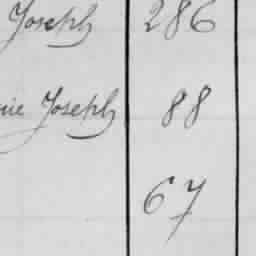 Joseph 286
Joseph 88
67